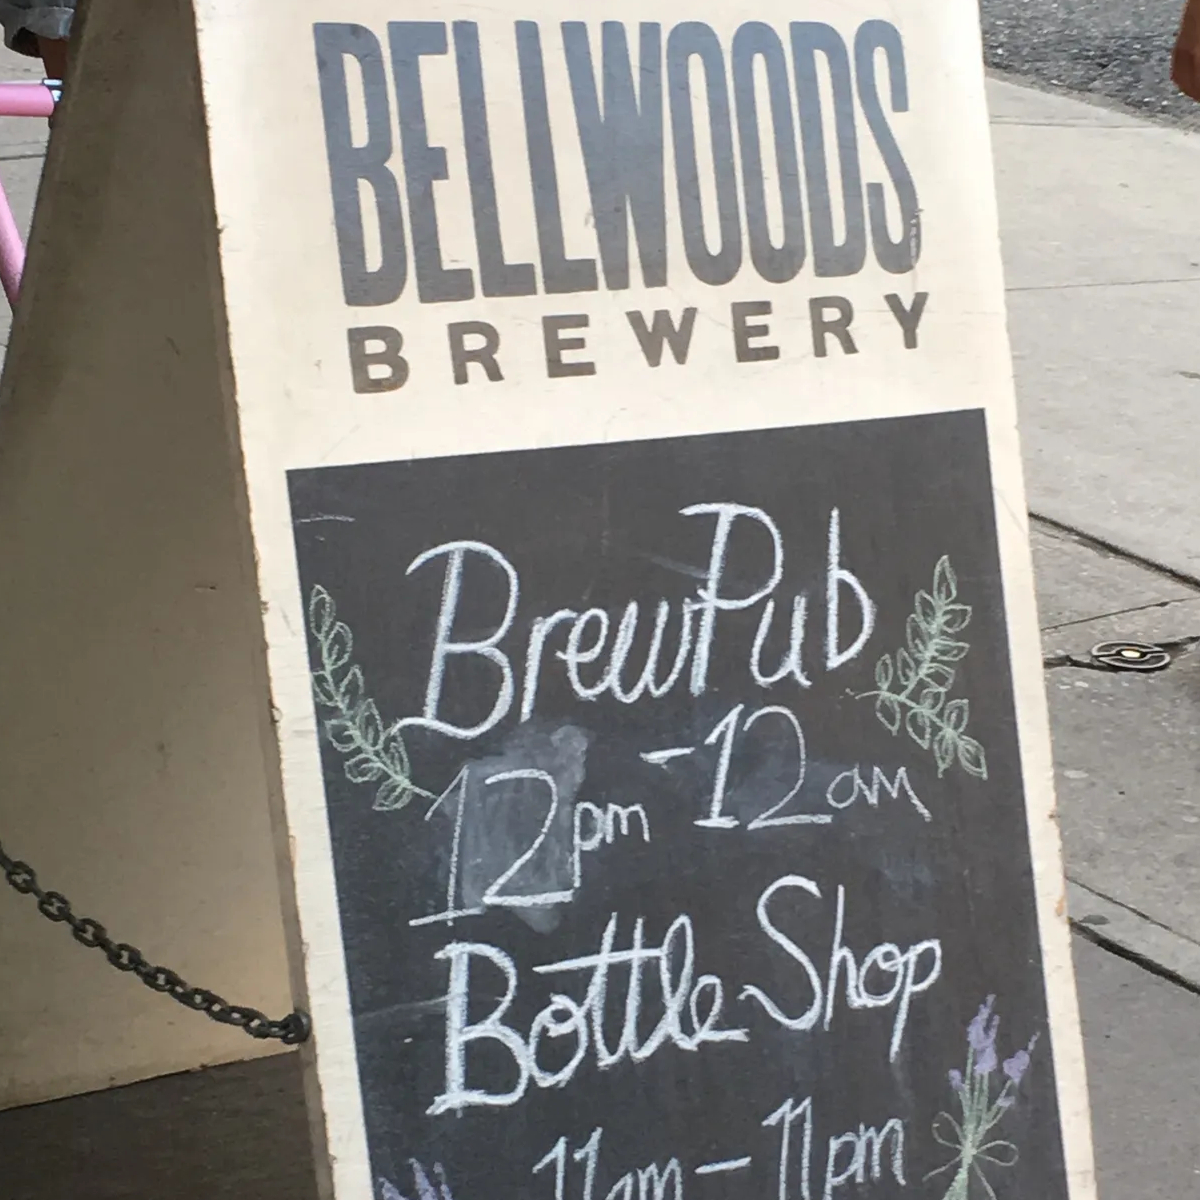 BELLWOODS
BREWERY
BrewPub
12pm - 12am
Bottle Shop
11am - 11pm